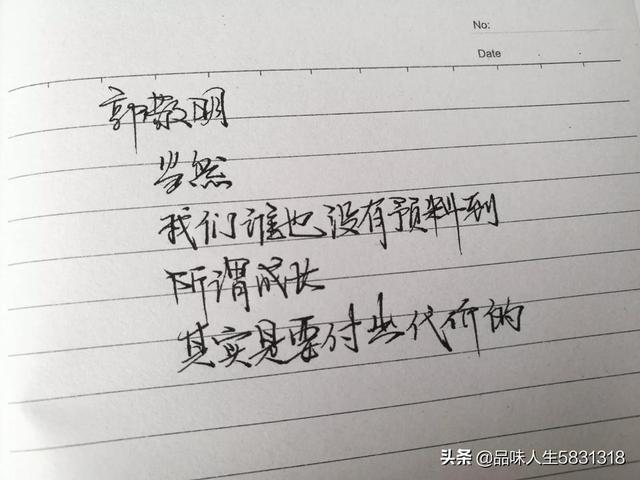 No:
Date
郭敬明
当然
我们谁也没有预料到
所谓成长
其实是要付出代价的
头条 @品味人生5831318